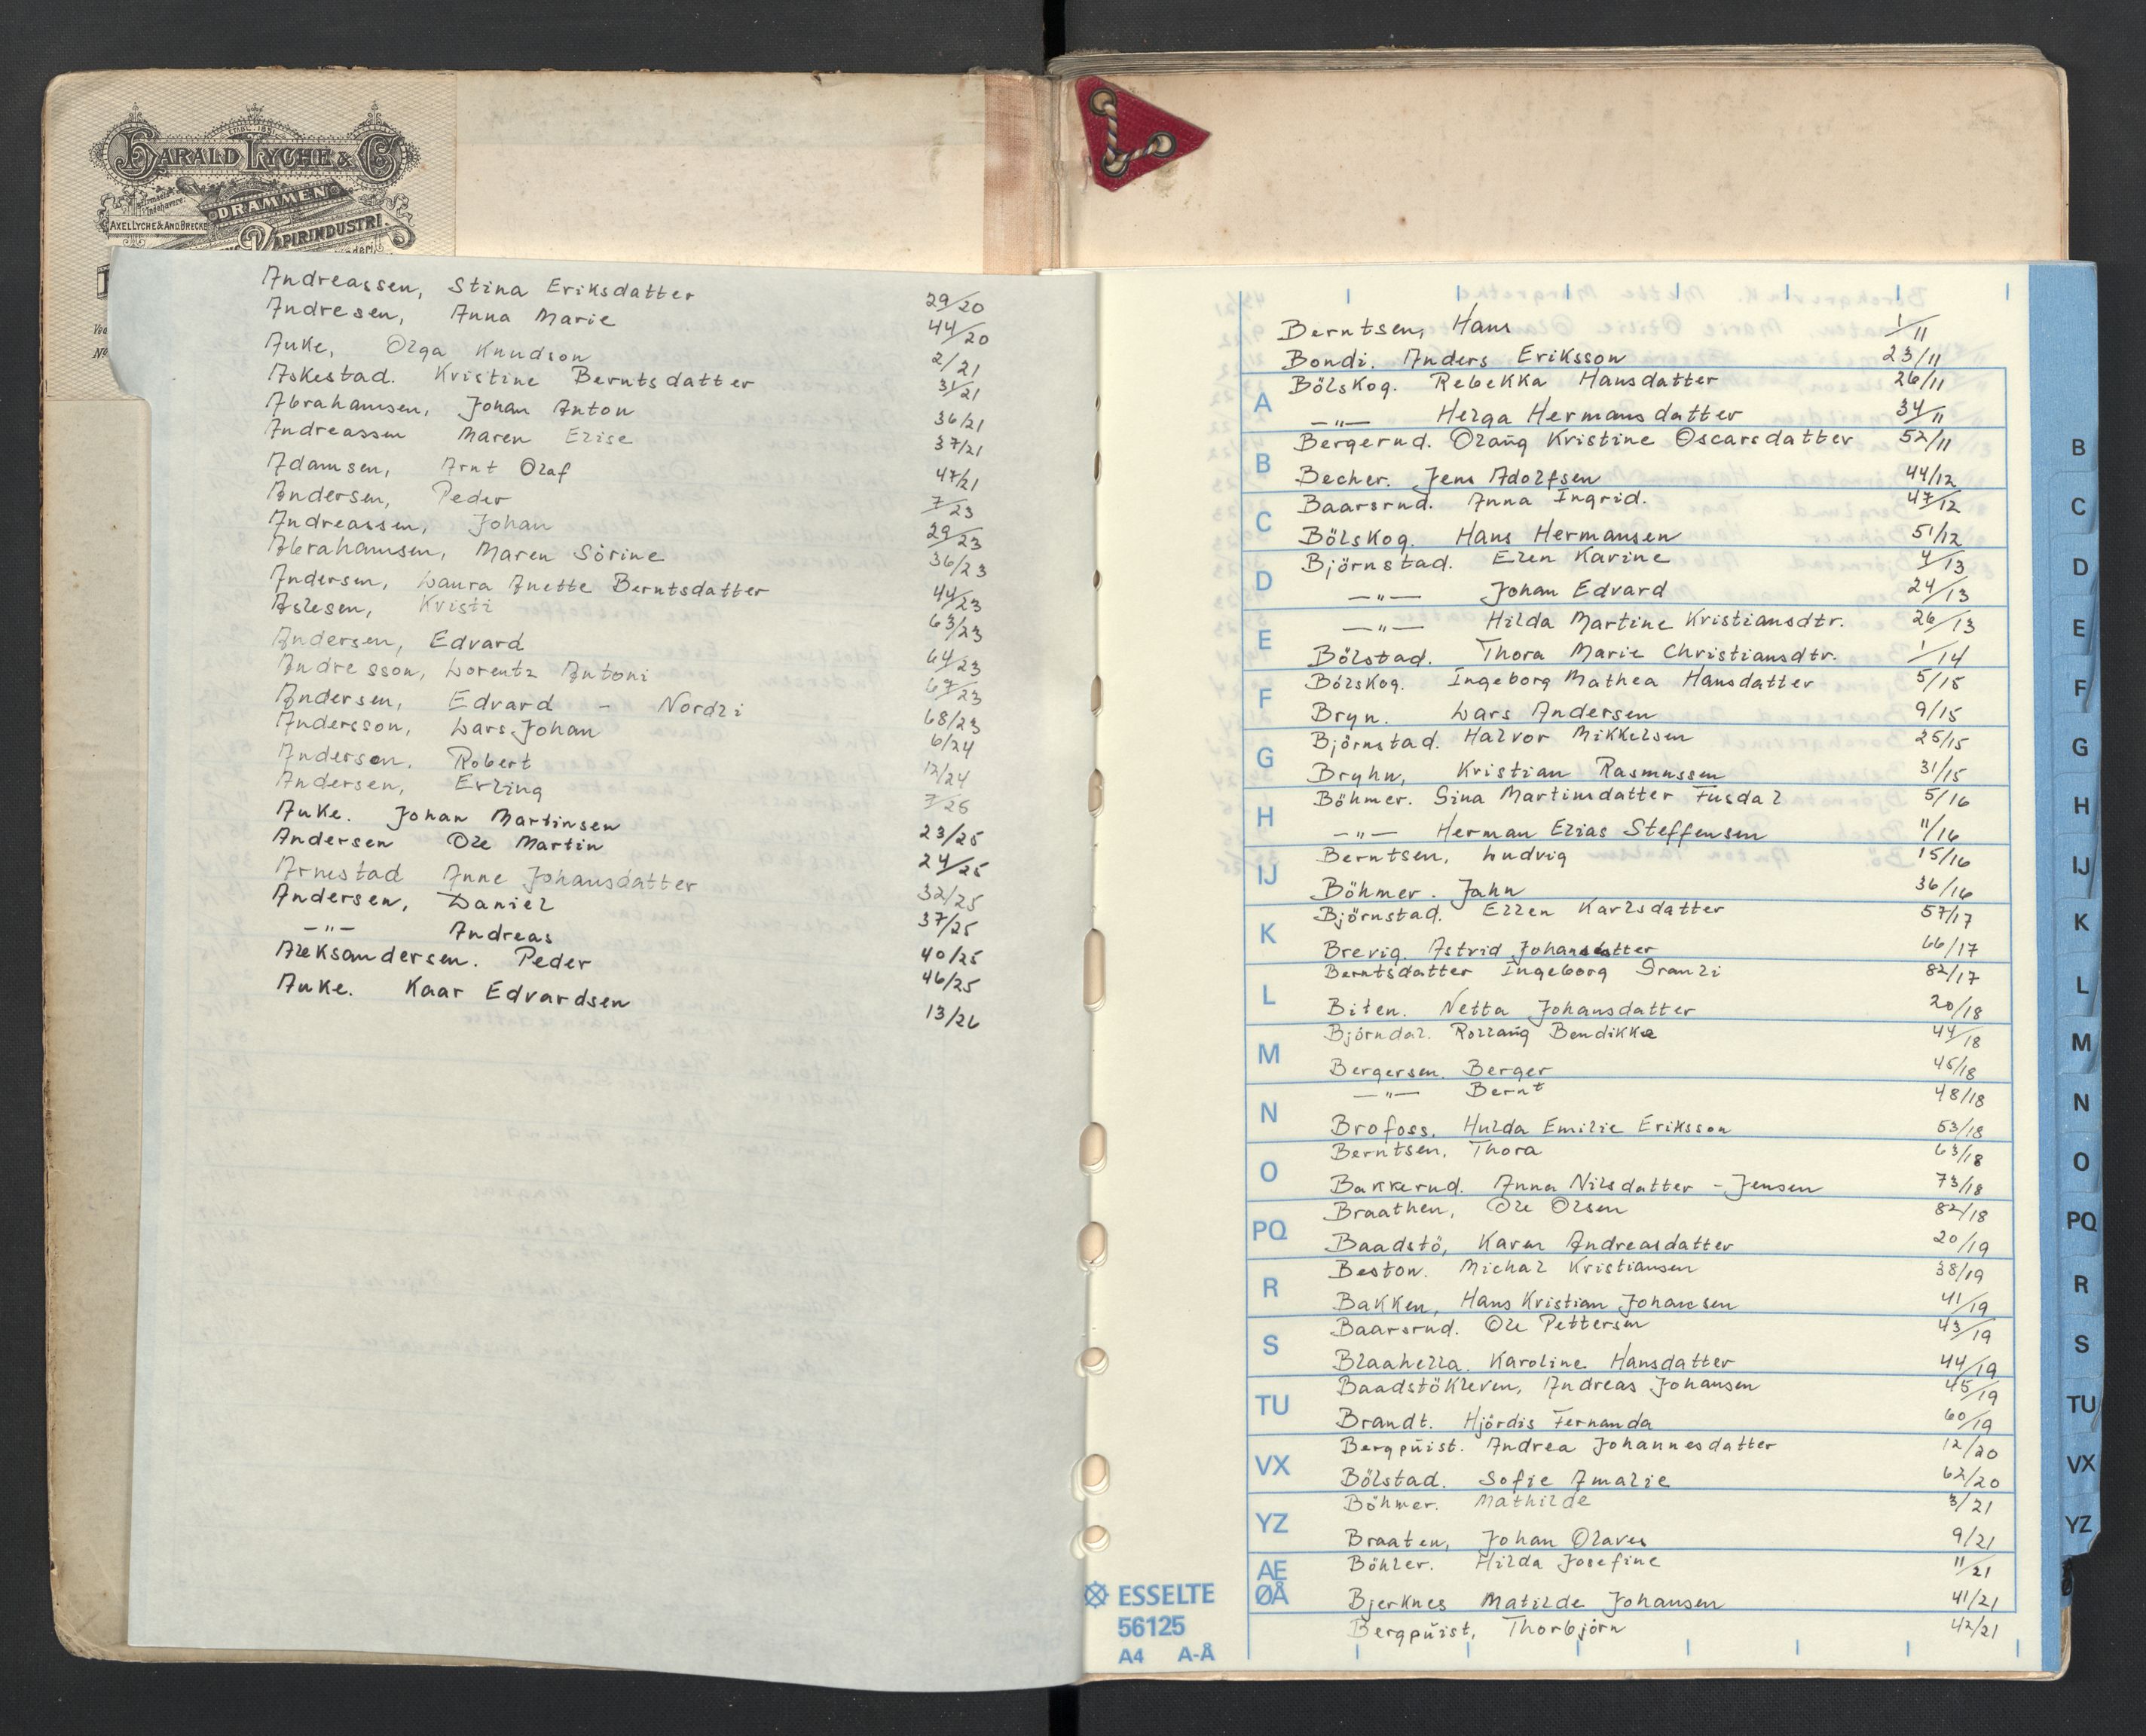 ETABL. 1851
HARALD LYCHE & Co
DRAMMEN
Indehavere:
AXEL LYCHE & AND. BRECKE
PAPIRINDUSTRI.
Andreassen, Stina Eriksdatter 29/20
Andresen, Anna Marie 44/20
Auke, Olga Knudson 2/21
Askestad. Kristine Berntsdatter 31/21
Abrahamsen, Johan Anton 36/21
Andreassen Maren Elise 37/21
Adamsen, Arnt Olaf 47/21
Andersen, Peder 7/23
Andreassen, Johan 29/23
Abrahamsen, Maren Sörine 36/23
Andersen, Laura Anette Berntsdatter 44/23
Aslesen, Kristi 63/23
Andersen, Edvard 64/23
Andresson, Lorentz Antoni 67/23
Andersen, Edvard - Nordli 68/23
Andersson, Lars Johan 6/24
Anderson, Robert 12/24
Andersen, Erling 7/25
Auke. Johan Martinsen 23/25
Andersen Ole Martin 24/25
Arnestad Anne Johansdatter 32/25
Andersen, Daniel 37/25
—"— Andreas 40/25
Aleksandersen. Peder 46/25
Auke. Kaar Edvardsen 13/26
Berntsen, Hans 1/11
Bondi. Anders Eriksson 23/11
A Bölskog. Rebekka Hansdatter 26/11
—"— Helga Hermansdatter 34/11
B Bergerud. Olaug Kristine Oscarsdatter 52/11
Becher. Jens Adolfsen 44/12
C Baarsrud. Anna Ingrid. 47/12
Bölskog. Hans Hermansen 51/12
D Björnstad. Elen Karine 4/13
—"— Johan Edvard 24/13
E —"— Hilda Martine Kristiansdtr. 26/13
Bölstad. Thora Marie Christiansdtr. 1/14
F Bölskog. Ingeborg Mathea Hansdatter 5/15
Bryn. Lars Andersen 9/15
G Björnstad. Halvor Mikkelsen 25/15
Bryhn, Kristian Rasmussen 31/15
H Böhmer. Sina Martinsdatter Fusdal 5/16
—"— Herman Elias Steffensen 11/16
IJ Berntsen, Ludvig 15/16
Böhmer. Jahn 36/16
K Björnstad. Ellen Karlsdatter 57/17
Brevig. Astrid Johansdatter 66/17
L Berntsdatter Ingeborg Granli 82/17
Biten. Netta Johansdatter 20/18
M Björndal. Rollaug Bendikke 44/18
Bergersen. Berger 45/18
N —"— Bernt 48/18
Brofoss. Hulda Emilie Eriksson 53/18
O Berntsen, Thora 63/18
Bakkerud. Anna Nilsdatter - Jensen 73/18
PQ Braathen, Ole Olsen 82/18
Baadstö, Karen Andreasdatter 20/19
R Beston. Michal Kristiansen 38/19
Bakken, Hans Kristian Johansen 41/19
S Baarsrud. Ole Pettersen 43/19
Blaahella. Karoline Hansdatter 44/19
TU Baadstökleven, Andreas Johansen 45/19
Brandt. Hjördis Fernanda 60/19
VX Bergquist. Andrea Johannesdatter 12/20
Bölstad. Sofie Amalie 62/20
YZ Böhmer. Mathilde 3/21
Braaten, Johan Olaves 9/21
AE Böhler. Hilda Josefine 11/21
ØÅ Bjerknes Matilde Johansen 41/21
Bergquist, Thorbjörn 42/21
ESSELTE
56125
A4 A-Å
B
C
D
E
F
G
H
IJ
K
L
M
N
O
PQ
R
S
TU
VX
YZ